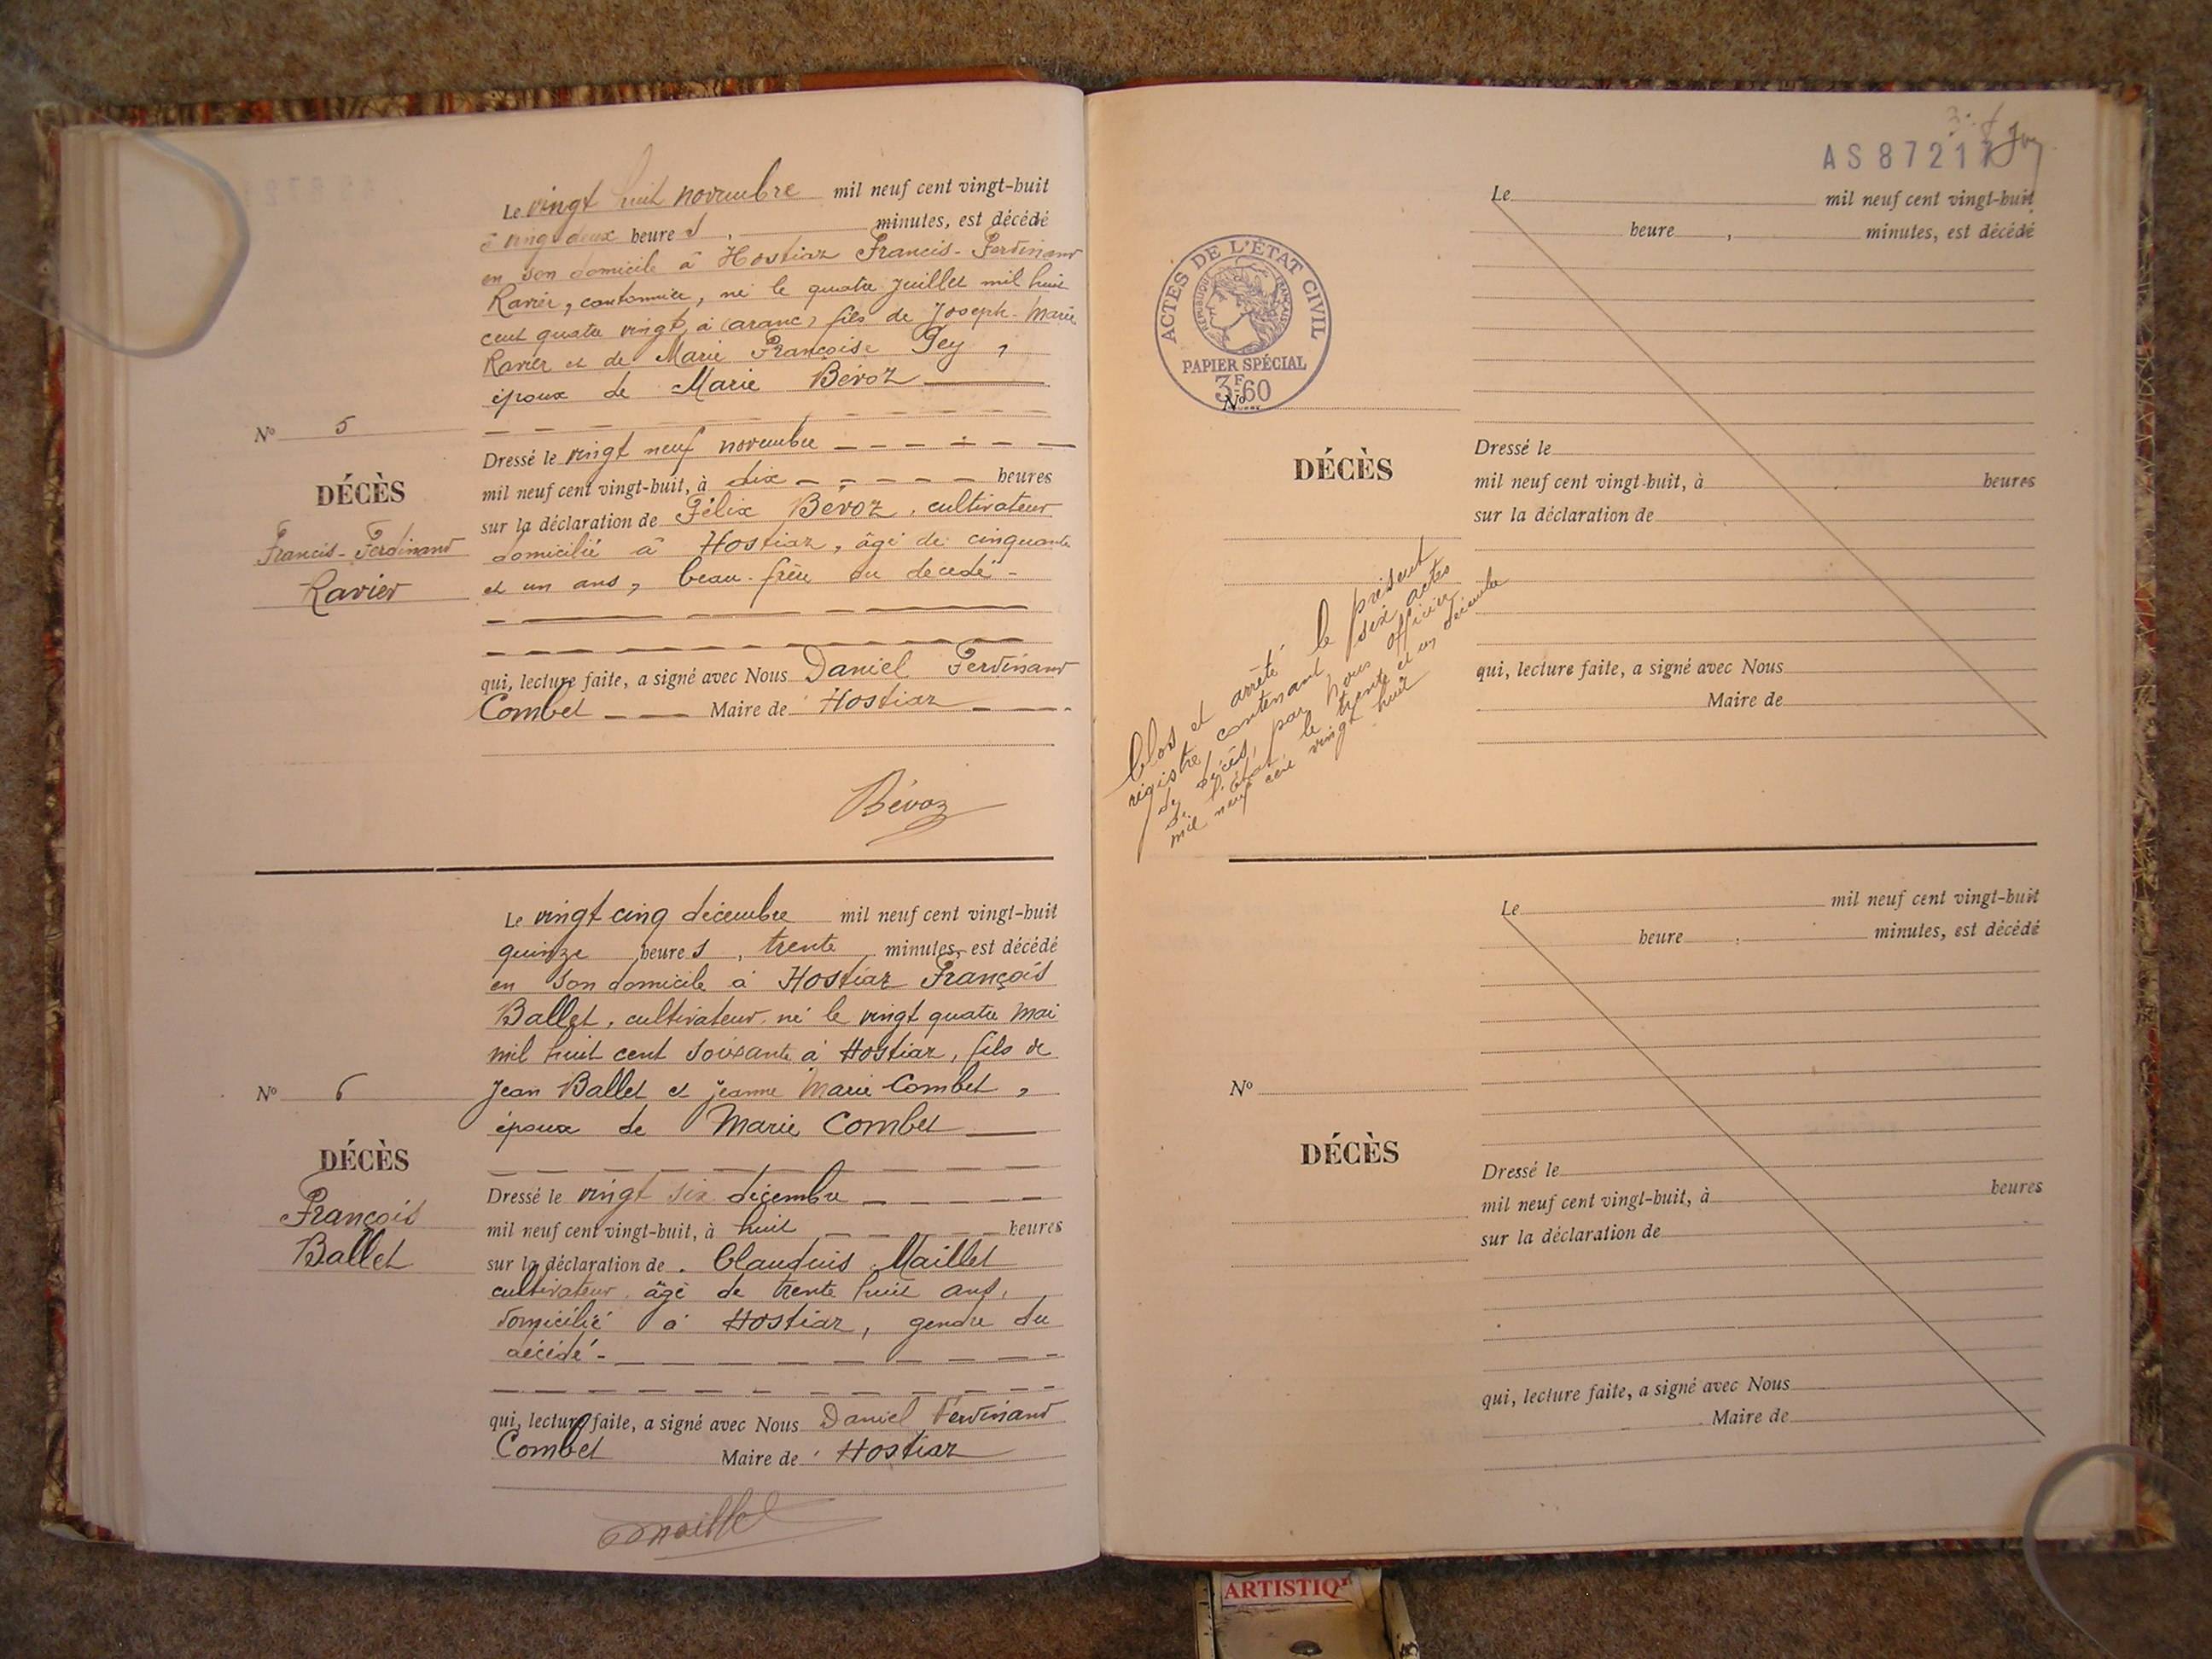 Le vingt huit novembre mil neuf cent vingt-huit
à vingt deux heures , minutes, est décédé
en son domicile à Hostiaz Francis-Ferdinand
Ravier, cantonnier, né le quatre Juillet mil huit
cent quatre vingt à (aranc) fils de Joseph-Marie
Ravier et de Marie Françoise Gey ,
époux de Marie Bévoz
No 5
DÉCÈS
Francis-Ferdinand
Ravier
Dressé le vingt neuf novembre
mil neuf cent vingt-huit, à dix heures
sur la déclaration de Félix Bévoz, cultivateur
domicilié à Hostiaz, âgé de cinquante
et un ans, beau-frère du décédé -
qui, lecture faite, a signé avec Nous Daniel Ferdinand
Combet Maire de Hostiaz
Bévoz
Le vingt cinq décembre mil neuf cent vingt-huit
quinze heures , trente minutes, est décédé
en son domicile à Hostiaz François
Ballet, cultivateur, né le vingt quatre mai
mil huit cent soixante à Hostiaz, fils de
Jean Ballet et jeanne Marie Combet ,
époux de Marie Combet
No 6
DÉCÈS
François
Ballet
Dressé le vingt six décembre
mil neuf cent vingt-huit, à huit heures
sur la déclaration de Claudius Maillet
cultivateur, âgé de trente huit ans,
domicilié à Hostiaz, gendre du
décédé -
qui, lecture faite, a signé avec Nous Daniel Ferdinand
Combet Maire de Hostiaz
Maillet
AS 87217
ACTES DE L'ÉTAT CIVIL
RÉPUBLIQUE FRANÇAISE
PAPIER SPÉCIAL
3F60
Le mil neuf cent vingt-huit
heure , minutes, est décédé
No
DÉCÈS
Dressé le
mil neuf cent vingt-huit, à heures
sur la déclaration de
qui, lecture faite, a signé avec Nous
Maire de
Clos et arrêté le présent
registre contenant six actes
de décès, par nous officier
de l'état le trente et un décembre
mil neuf cent vingt huit
Le mil neuf cent vingt-huit
heure , minutes, est décédé
No
DÉCÈS
Dressé le
mil neuf cent vingt-huit, à heures
sur la déclaration de
qui, lecture faite, a signé avec Nous
Maire de
ARTISTIQ